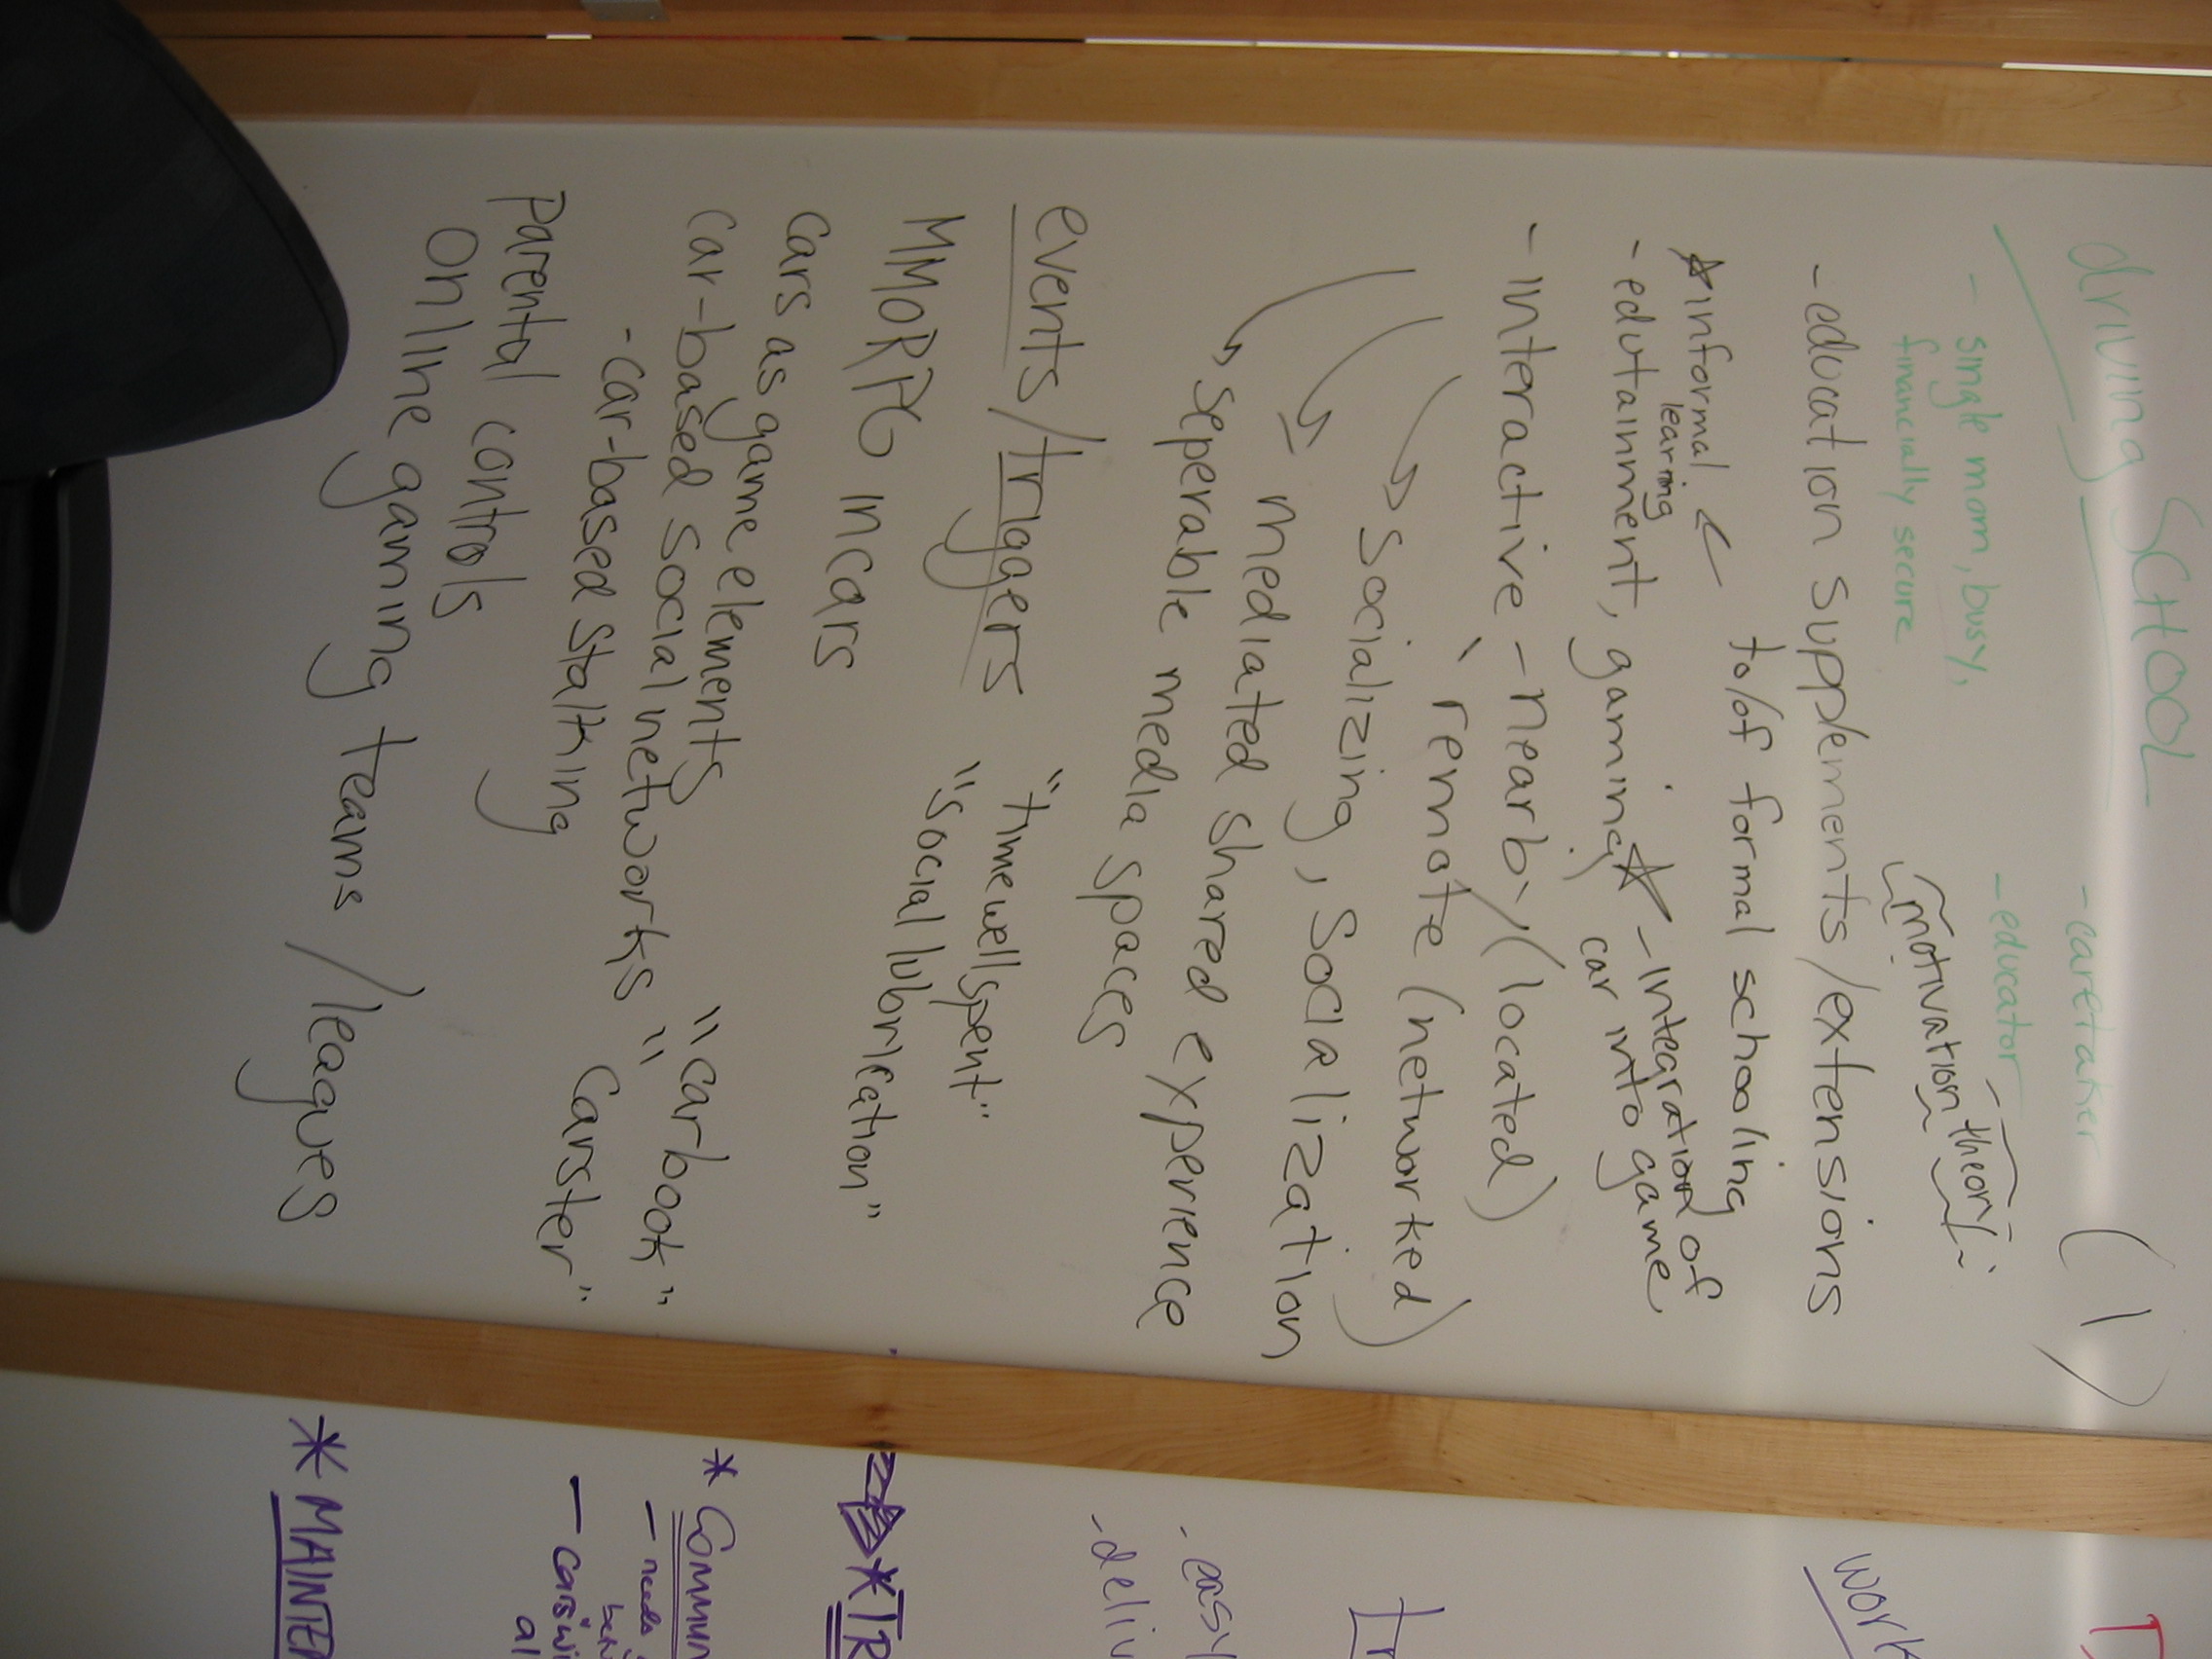 driving SCHOOL
- caretaker
(1)
- single mom, busy,
financially secure
- educator
motivation theory
- education supplements/extensions
to/of formal schooling
informal
learing
- edutainment, gaming - integration of
car into game
- interactive - nearby (located)
remote (networked)
socializing, socialization
mediated shared experience
seperable media spaces
events/triggers
"time well spent"
"social lubrication"
MMORPG in cars
cars as game elements
car-based social networks
"carbook"
"Carster"
- car-based stalking
parental controls
online gaming teams/leagues
work
- easy
- deliv
* Commun
- needs
- cars wi
al
* MAINTEN